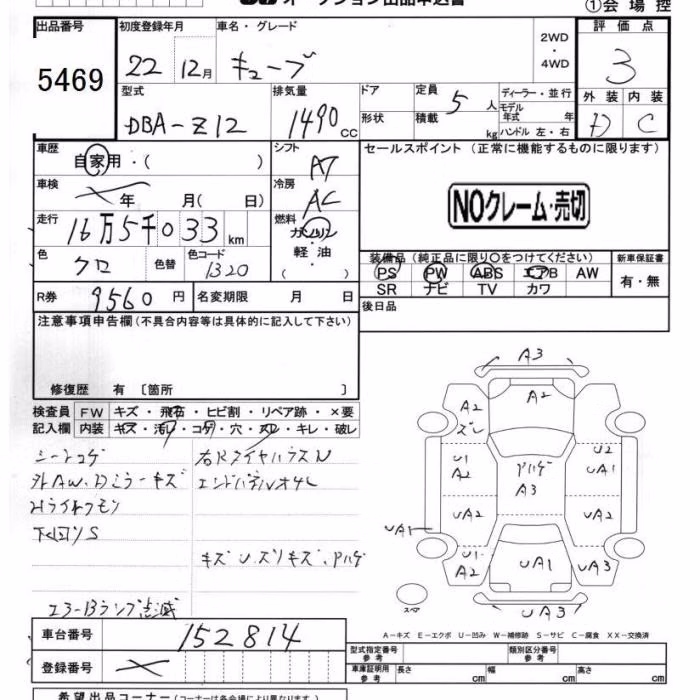 オークション出品申込書
①会場控
出品番号
5469
初度登録年月
22 12月
車名・グレード
キューブ
2WD
・
4WD
評価点
3
外装 内装
D C
型式
DBA-Z12
排気量
1490 cc
ドア
形状
定員 5 人
積載 kg
ディーラー・並行
モデル年式 年
ハンドル 左・右
車歴
自家用・( )
シフト AT
セールスポイント (正常に機能するものに限ります)
NOクレーム・売切
車検
年 月( 日)
冷房 AC
走行
16万5千033 km
燃料
ガソリン
軽油
( )
色
クロ
色替
色コード
1320
装備品 (純正品に限り○をつけてください)
新車保証書
PS PW ABS エアB AW
SR ナビ TV カワ
有・無
R券 9560 円
名変期限 月 日
後日品
注意事項申告欄 (不具合内容等は具体的に記入して下さい)
修復歴 有 〔箇所 〕
検査員記入欄
FW キズ・飛石・ヒビ割・リペア跡・×要
内装 キズ・汚レ・コゲ・穴・スレ・キレ・破レ
シートコゲ
外AW、Dミラーキズ
Hライトクモリ
下回りS
エアーBランプ点滅
エンドパネル
キズU、スリキズ、アハゲ
A3
A2
A2
ズレ
U1
A2
アハゲ
A3
U2
UA1
UA2
UA2
UA1
U1
A2
UA1
UA3
UA3
スペア
A-キズ E-エクボ U-凹み W-補修跡 S-サビ C-腐食 XX-交換済
車台番号 152814
登録番号
型式指定番号
参考
類別区分番号
参考
車庫証明用
参考
長さ cm 幅 cm 高さ cm
希望出品コーナー (コーナーは各会場により異なります。)